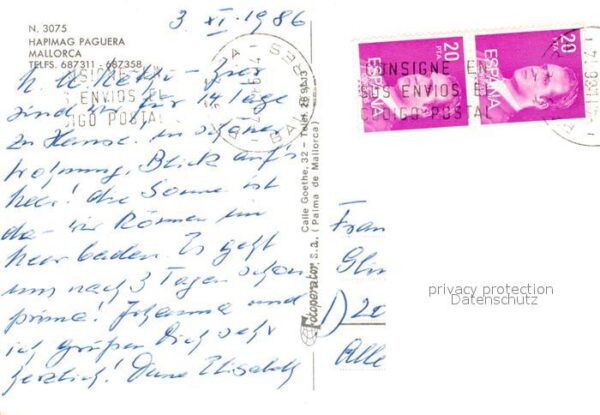 3. XI. 1986
N. 3075
HAPIMAG PAGUERA
MALLORCA
TELFS. 687311 - 687358
sind wir für 14 Tage
zu Hause in schöner
Wohnung, Blick auf's
Meer! die Sonne ist
da - wir können im
Meer baden. Es geht
uns nach 3 Tagen schon
prima! Johanna und
ich grüßen Dich sehr
herzlich! Deine Elisabeth
Fotoperator, s.a., Calle Goethe, 32 - Telef.
(Palma de Mallorca)
20 PTA
ESPAÑA
20 PTA
ESPAÑA
CONSIGNE EN
SUS ENVIOS EL
CODIGO POSTAL
CONSIGNE EN
SUS ENVIOS EL
CODIGO POSTAL
BALEARES
Fran
D 20
Alle
privacy protection
Datenschutz